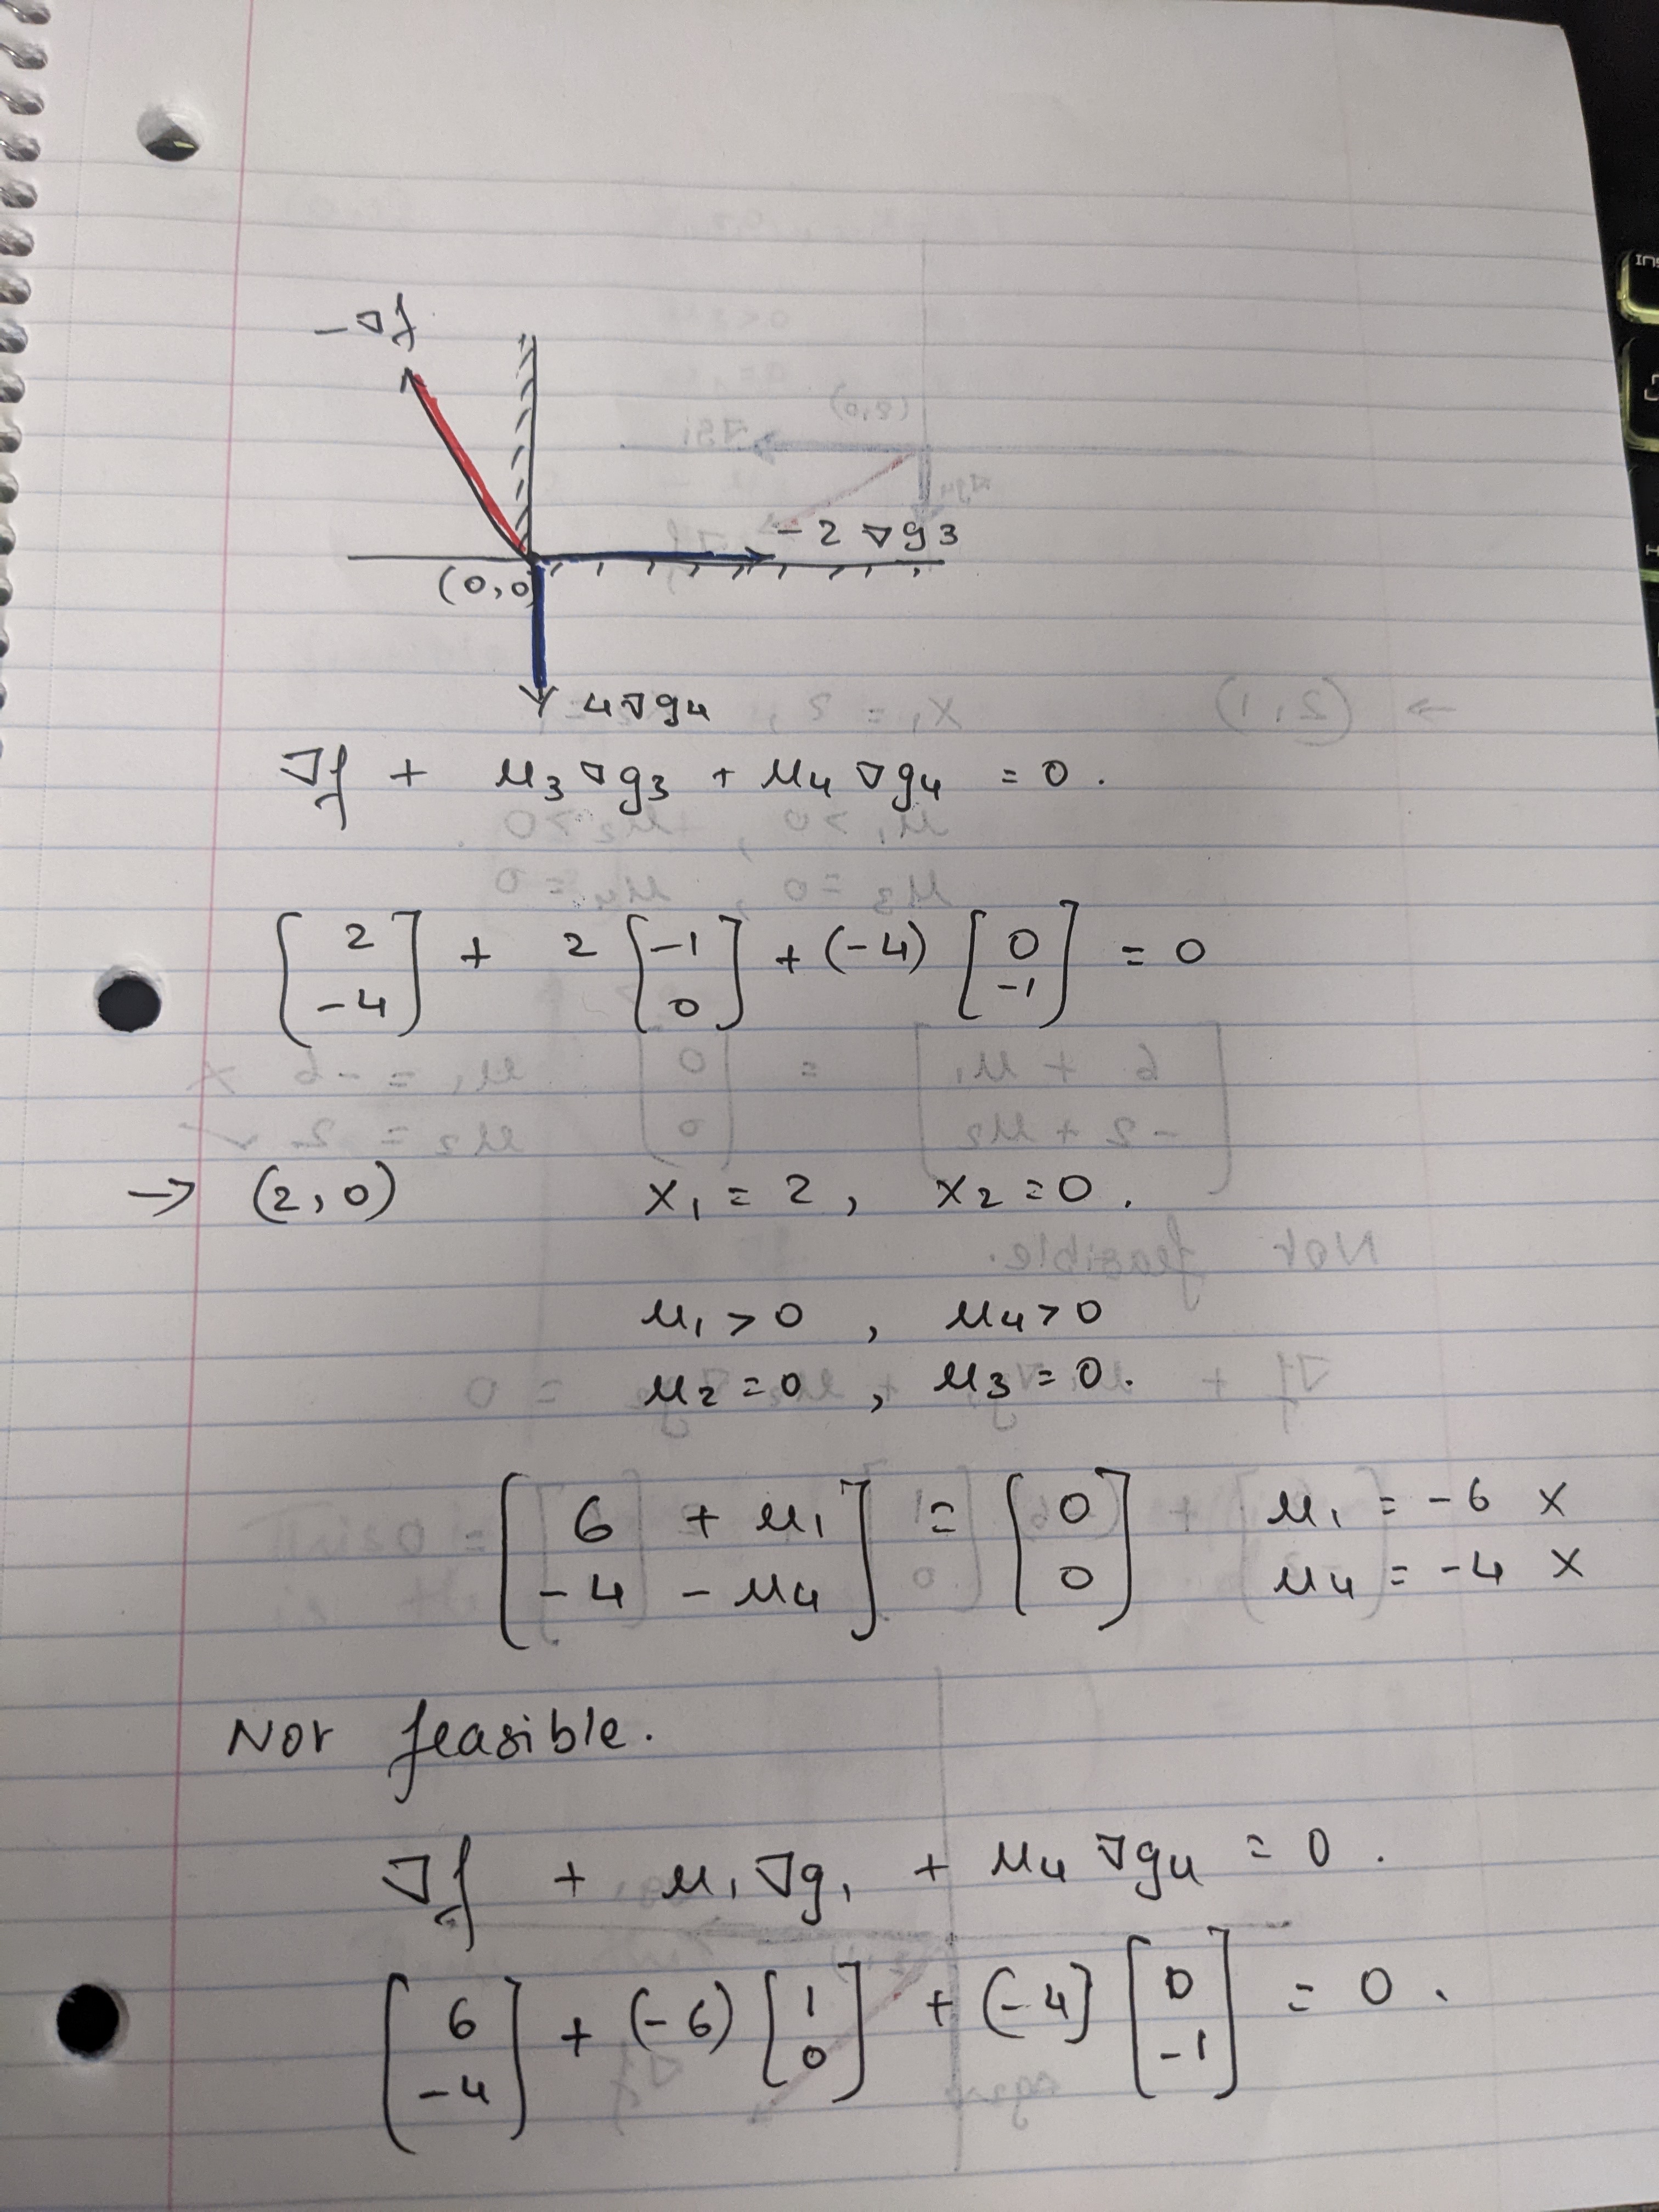 -∇f
-2 ∇g3
(0,0)
4∇g4
∇f + μ3 ∇g3 + μ4 ∇g4 = 0.
[2 -4] + 2 [-1 0] + (-4) [0 -1] = 0
→ (2,0) x1 = 2, x2 = 0.
μ1 > 0, μ4 > 0
μ2 = 0, μ3 = 0.
[6 + μ1
-4 - μ4] = [0 0]
μ1 = -6 X
μ4 = -4 X
Not feasible.
∇f + μ1 ∇g1 + μ4 ∇g4 = 0.
[6 -4] + (-6) [1 0] + (-4) [0 -1] = 0.